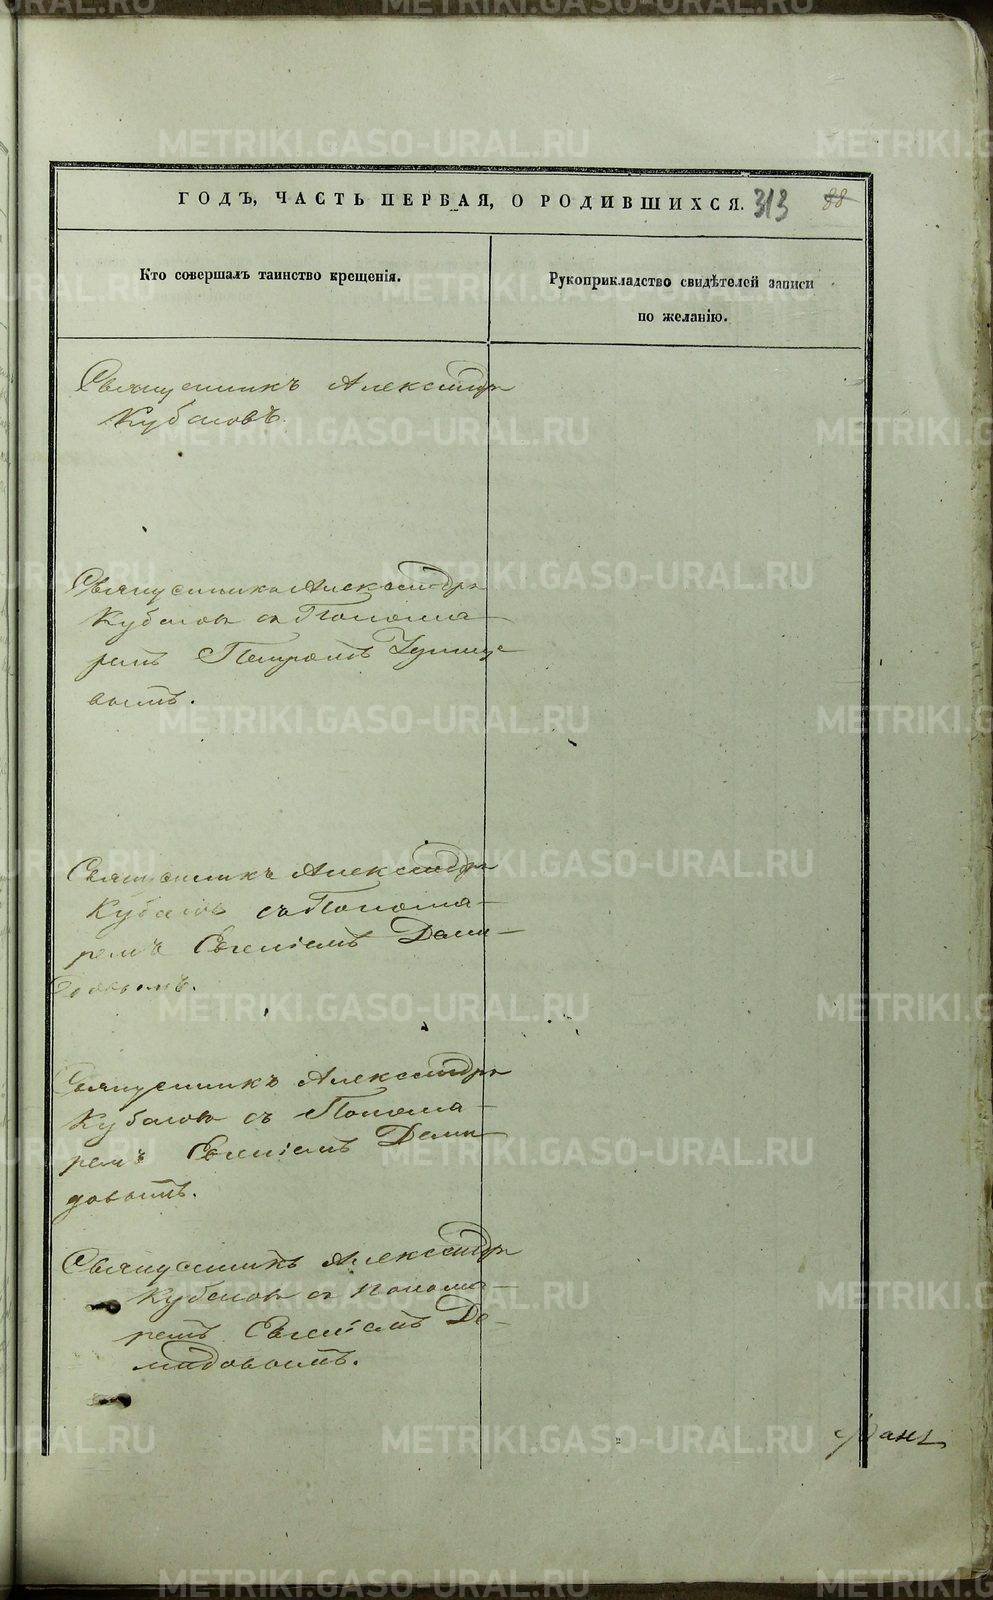 ГОДЪ, ЧАСТЬ ПЕРВАЯ, О РОДИВШИХСЯ. 313 88
Кто совершалъ таинство крещенія.
Рукоприкладство свидѣтелей записи
по желанію.
Священникъ Александръ
Кубасовъ.
Священникъ Александръ
Кубасовъ съ Понома-
ремъ Петромъ
вымъ.
Священникъ Александръ
Кубасовъ съ Понома-
ремъ Евгеніемъ Деми-
довымъ.
Священникъ Александръ
Кубасовъ съ Понома-
ремъ Евгеніемъ Деми-
довымъ.
Священникъ Александръ
Кубасовъ съ Понома-
ремъ Евгеніемъ Де-
мидовымъ.
METRIKI.GASO-URAL.RU